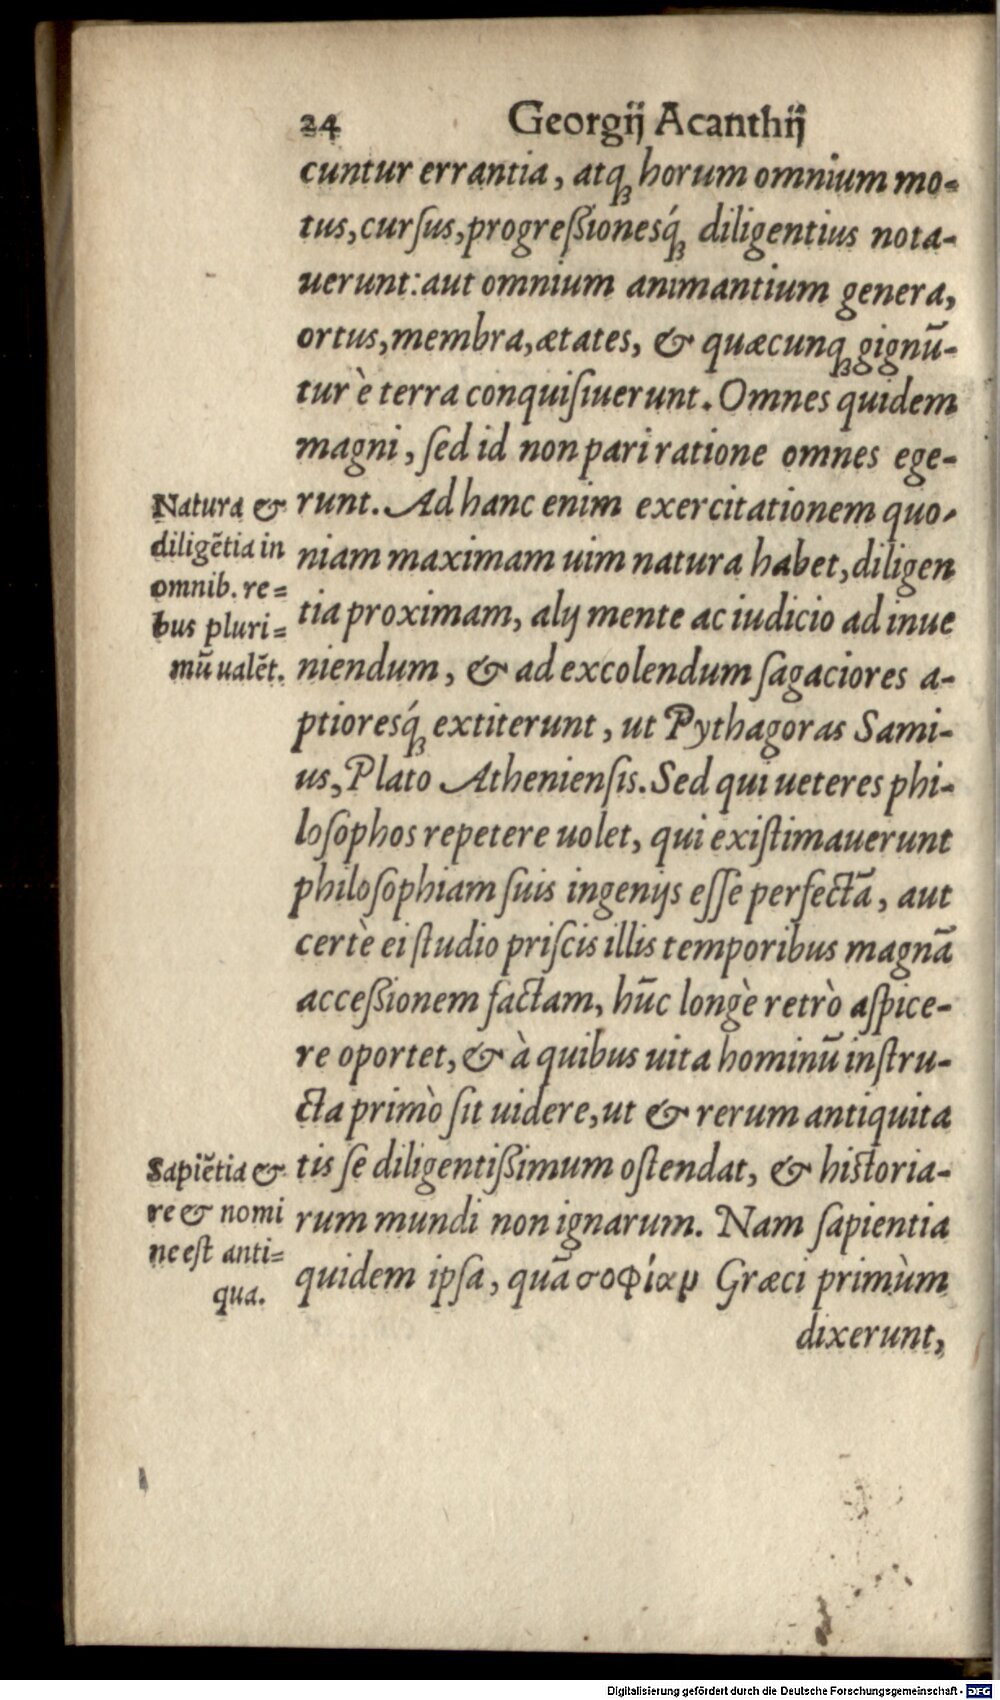 24 Georgij Acanthij
cuntur errantia, atq; horum omnium mo-
tus, curſus, progreßionesq́; diligentius nota-
uerunt: aut omnium animantium genera,
ortus, membra, ætates, & quæcunq; gignū-
tur è terra conquiſiuerunt. Omnes quidem
magni, ſed id non pari ratione omnes ege-
runt. Ad hanc enim exercitationem quo-
niam maximam uim natura habet, diligen
tia proximam, alij mente ac iudicio ad inue
niendum, & ad excolendum ſagaciores a-
ptioresq́; extiterunt, ut Pythagoras Sami-
us, Plato Athenienſis. Sed qui ueteres phi-
loſophos repetere uolet, qui exiſtimauerunt
philoſophiam ſuis ingenijs eſſe perfectā, aut
certè ei ſtudio priſcis illis temporibus magnā
acceßionem factam, hūc longè retrò aſpice-
re oportet, & à quibus uita hominū inſtru-
cta primò ſit uidere, ut & rerum antiquita
tis ſe diligentißimum oſtendat, & historia-
rum mundi non ignarum. Nam ſapientia
quidem ipſa, quā σοφίαν Græci primùm
dixerunt,
Natura &
diligētia in
omnib. re=
bus pluri=
mū ualēt.
Sapiētia &
re & nomi
ne eſt anti=
qua.
Digitalisierung gefördert durch die Deutsche Forschungsgemeinschaft - DFG